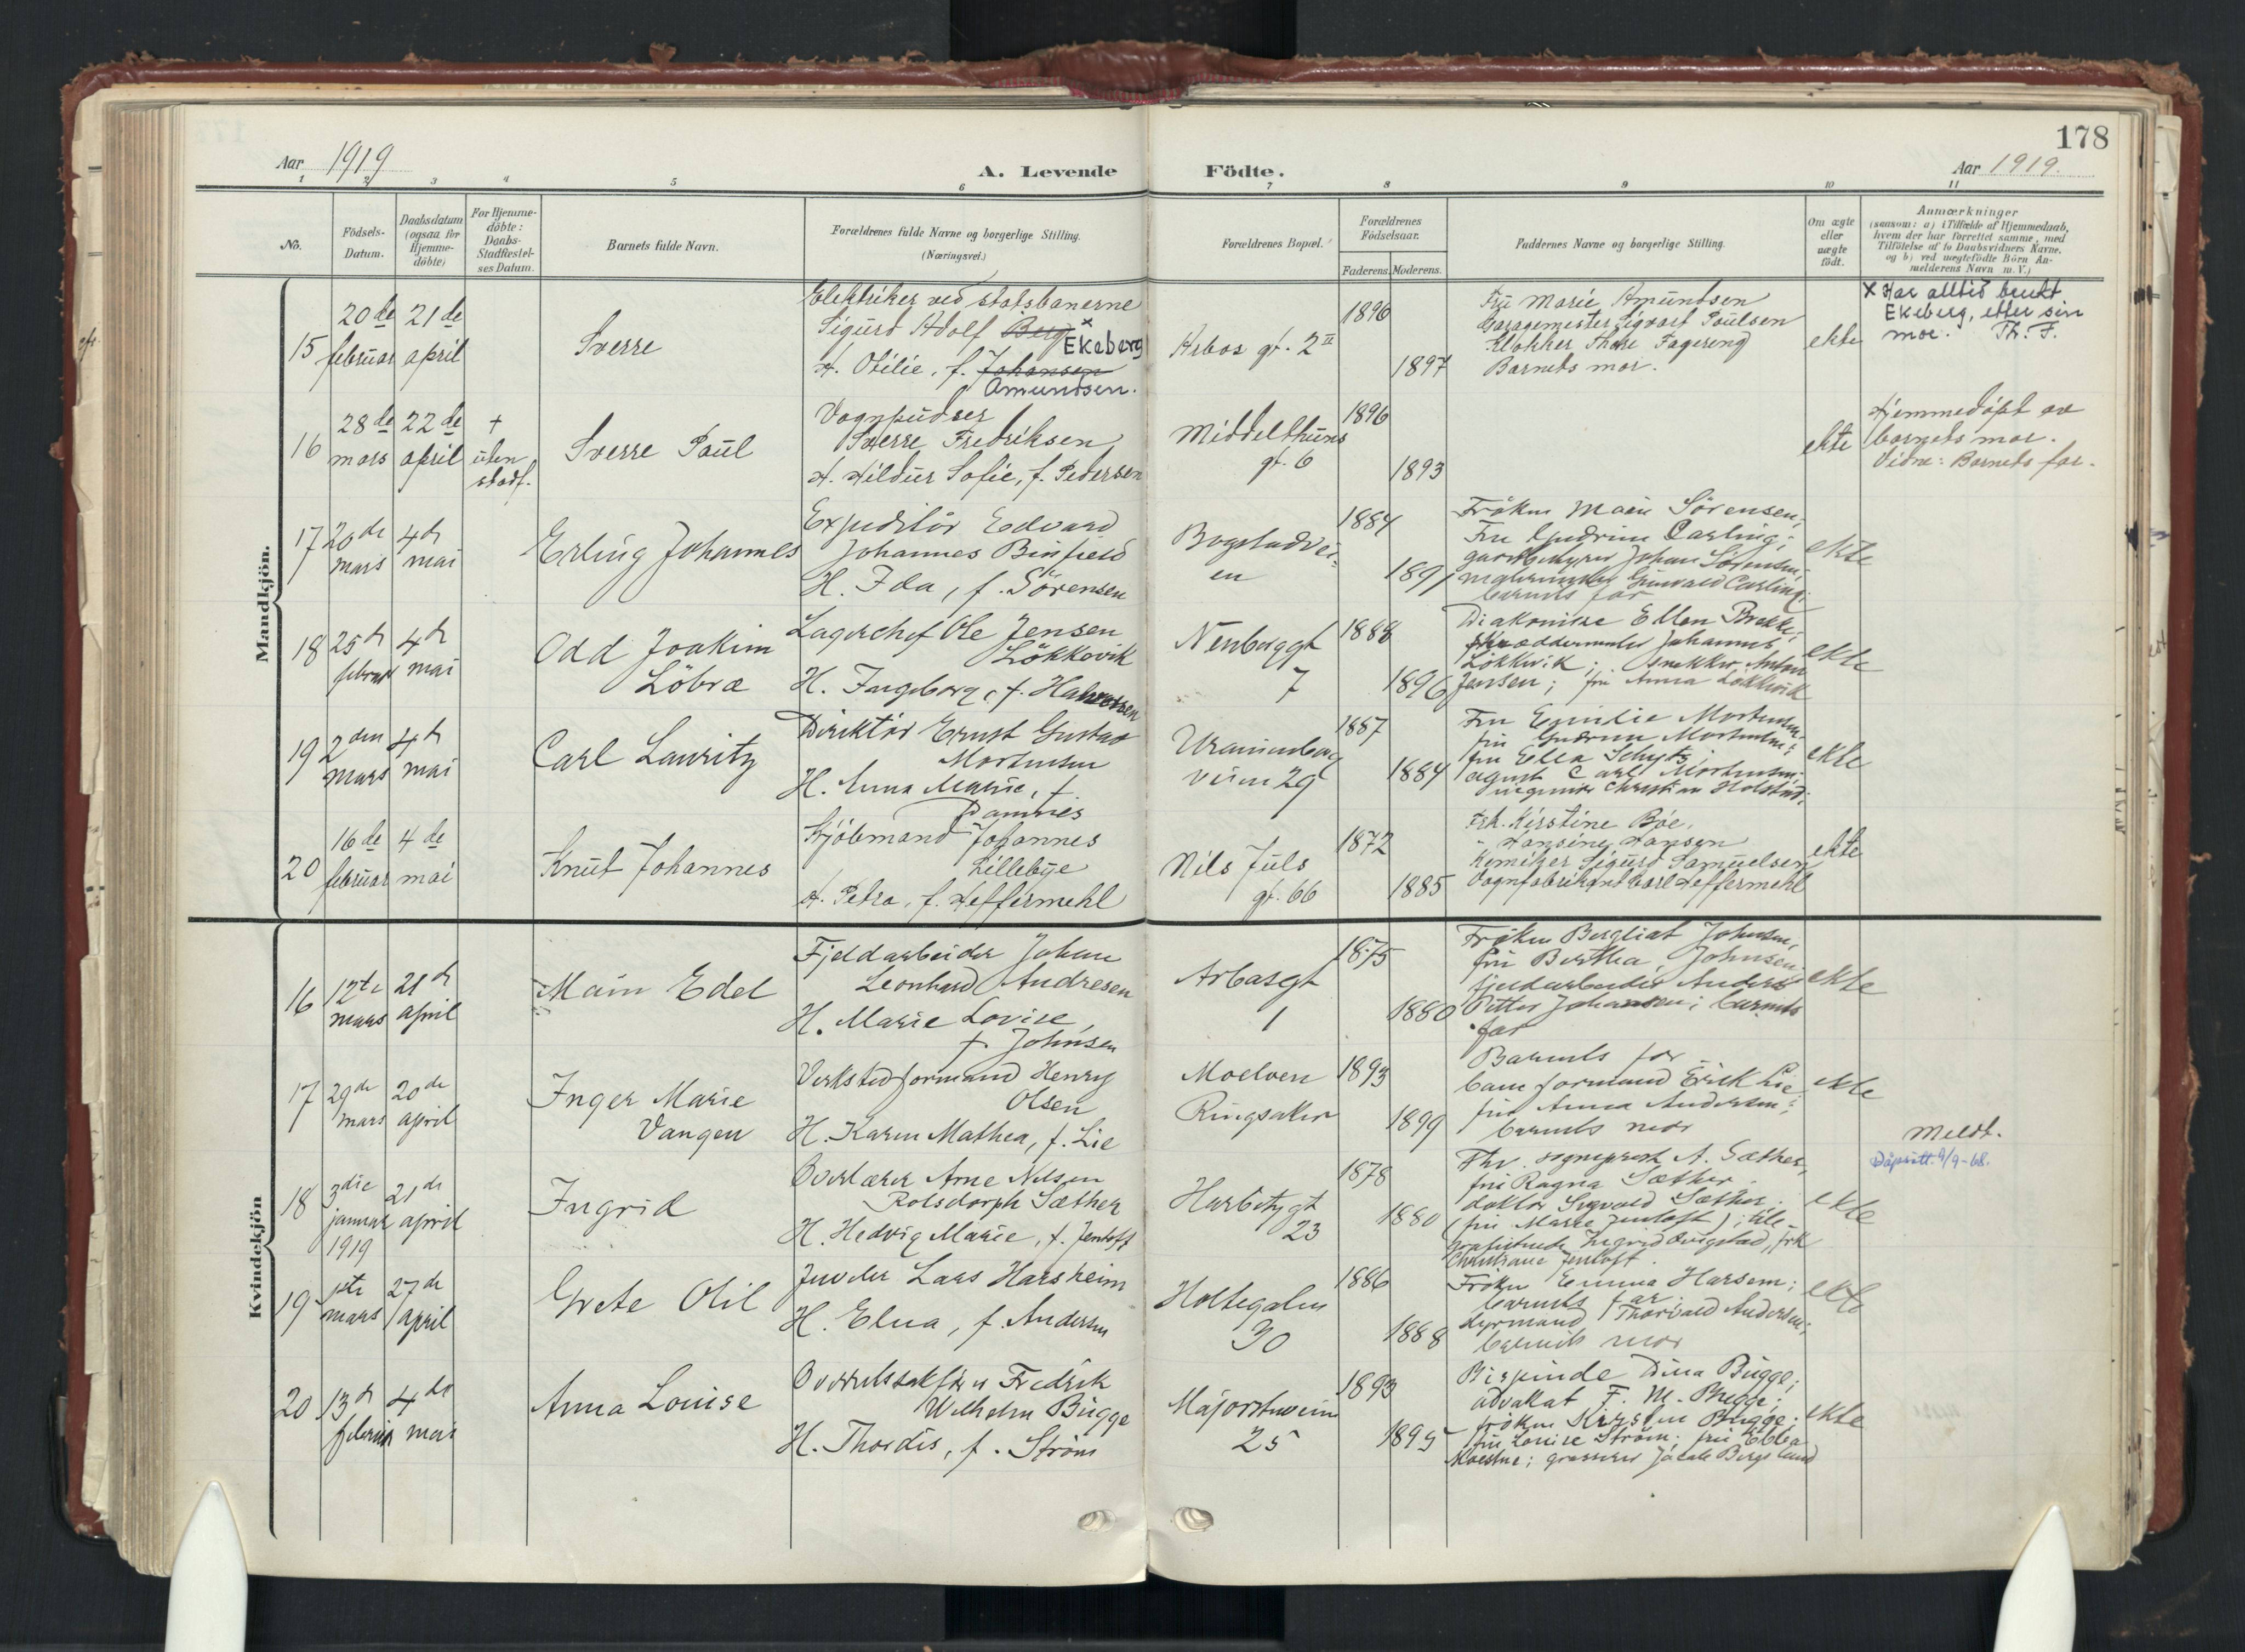 178
Aar 1919
A. Levende
Födte.
Aar 1919.
1 2 3 4 5 6 7 8 9 10 11
No.
Födsels-
Datum.
Daabsdatum
(ogsaa for
Hjemme-
döbte)
For Hjemme-
döbte:
Daabs-
Stadfæstel-
ses Datum.
Barnets fulde Navn.
Forældrenes fulde Navne og borgerlige Stilling.
(Næringsvei.)
Forældrenes Bopæl.
Forældrenes
Födselsaar.
Faderens. Moderens.
Faddernes Navne og borgerlige Stilling.
Om ægte
eller
uægte
födt.
Anmærkninger
(saasom: a) i Tilfælde af Hjemmedaab,
hvem der har forrettet samme, med
Tilföielse af to Daabsvidners Navne,
og b) ved uægtefödte Börn An-
melderens Navn m. V.)
Mandkjön.
15
20de
februar
21de
april
Sverre
Elektriker ved statsbanerne
Sigurd Adolf Berg x
Ekeberg
H. Otilie, f. Johansen
Amundsen.
Arbos gt. 2 II
1896
1897
Fru Marie Amundsen
Garagemester Sigvart Paulsen
Klokker Thore Fagereng
Barnets mor.
ekte
x Har alltid brukt
Ekeberg, etter sin
mor. Th. F.
16
28de
mars
22de
april
+
uten
stadf.
Sverre Paul
Vognpudser
Sverre Fredriksen
H. Hildur Sofie, f. Pedersen
Middelthuns
gt. 6
1896
1893
ekte
Hjemmedøpt av
barnets mor.
Vidne: Barnets far.
17
20de
mars
4de
mai
Erling Johannes
Expeditör Edvard
Johannes Binfield
H. Ida, f. Sörensen
Bogstadvei-
en
1884
1891
Fröken Marie Sörensen;
Fru Gudrun Carling;
gardbestyrer Johan Sörensen;
malermester Gunvald Carling;
barnets far
ekte
18
25de
februar
4de
mai
Odd Joakim
Löbra
Lagerchef Ole Jensen
Lökkevik
H. Ingeborg, f. Halvorsen
Nenbuggt
7
1888
1896
Diakonisse Ellen Brekke;
skræddermester Johannes
Lökkevik; snekker Anton
Jensen; fru Anna Lökkevik
ekte
19
2den
mars
4de
mai
Carl Lauritz
Direktör Ernst Gustav
Mortensen
H. Anna Marie, f.
Damnes
Uranienborg
veien 29
1887
1884
Fru Emilie Mortensen
fru Gudrun Mortensen;
fru Ella Schytz;
agent Carl Mortensen;
ingeniör Christian Holstad;
ekte
20
16de
februar
4de
mai
Knut Johannes
Kjöbmand Johannes
Lillebye
H. Petra, f. Heffermehl
Nils Juls
gt. 66
1872
1885
Frk. Kirstine Bøe.
" Hansine Hansen
Kemiker Sigurd Samuelsen
Vognfabrikant Carl Heffermehl
ekte
Kvindekjön
16
12te
mars
21de
april
Main Edel
Fjeldarbeider Johan
Leonhard Andresen
H. Marie Lovise,
f. Johnsen
Arbosgt
1
1875
1880
Fröken Bergliot Johnsen,
fru Bertha Johnsen
fjeldarbeider Anders
Petter Johansen; barnets
far
ekte
17
29de
mars
20de
april
Inger Marie
Vangen
Verkstedformand Henry
Olsen
H. Karen Mathea, f. Lie
Moelven
Ringsaker
1893
1899
Barnets far
baneformand Erik Lie
fru Anna Andersen;
barnets mor
ekte
18
3die
januar
1919
21de
april
Ingrid
Overlærer Arne Nilsen
Rolsdorph Sæther
H. Hedvig Marie, f. Jentoft
Harbitzgt
23
1878
1880
Fhv. sogneprest A. Sæther,
fru Ragna Sæther
doktor Sigvald Sæther.
(fru Marie Jentoft); tele-
grafistinde Ingrid Ovigstad, frk
Christiane Jentoft.
ekte
Meldt.
Dåpsatt. 9/9-68.
19
1ste
mars
27de
april
Grete Olil
Juveler Lars Harsheim
H. Elna, f. Andersen
Holtegaten
30
1886
1888
Fröken Emma Harsem;
barnets far.
styrmand Thorvald Andersen;
barnets mor
ekte
20
13de
februar
4de
mai
Anna Louise
Overretssakförer Fredrik
Wilhelm Bugge
H. Thordis, f. Ström
Majorstuveien
25
1893
1895
Bispinde Dina Bugge;
advokat F. M. Bugge;
fröken Kirsten Bugge;
fru Louise Ström; fru Ebba
Moestue; grosserer Jacob Bergsland
ekte